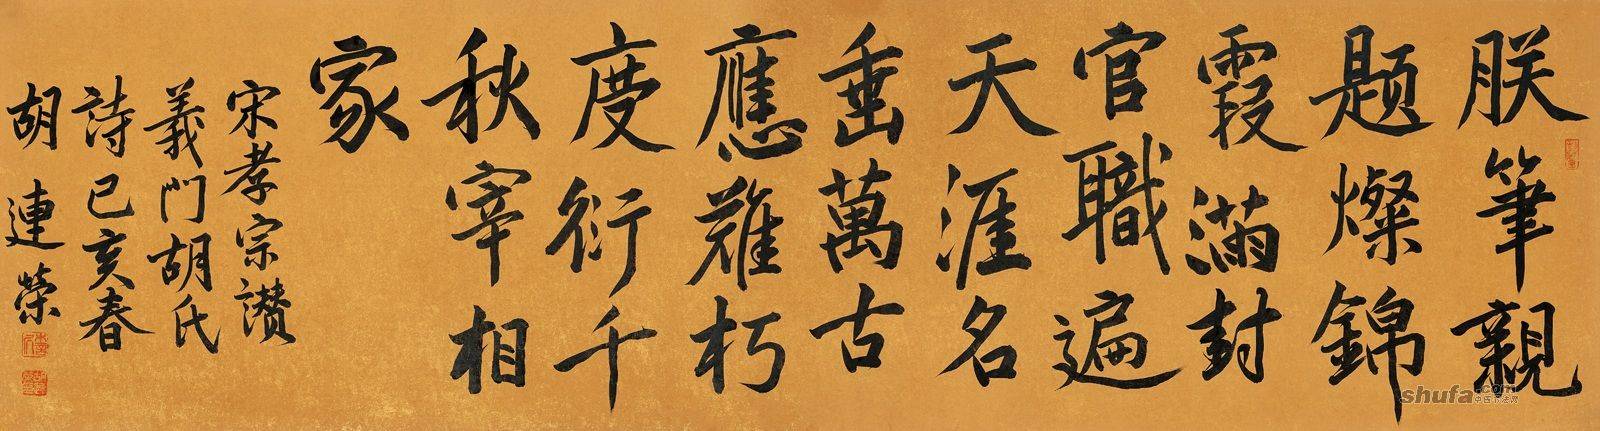 朕筆親
題燦錦
霞滿封
官職遍
天涯名
垂萬古
應難朽
度衍千
秋宰相
家
宋孝宗讚
義門胡氏
詩己亥春
胡連榮
shufa.com
中国书法网